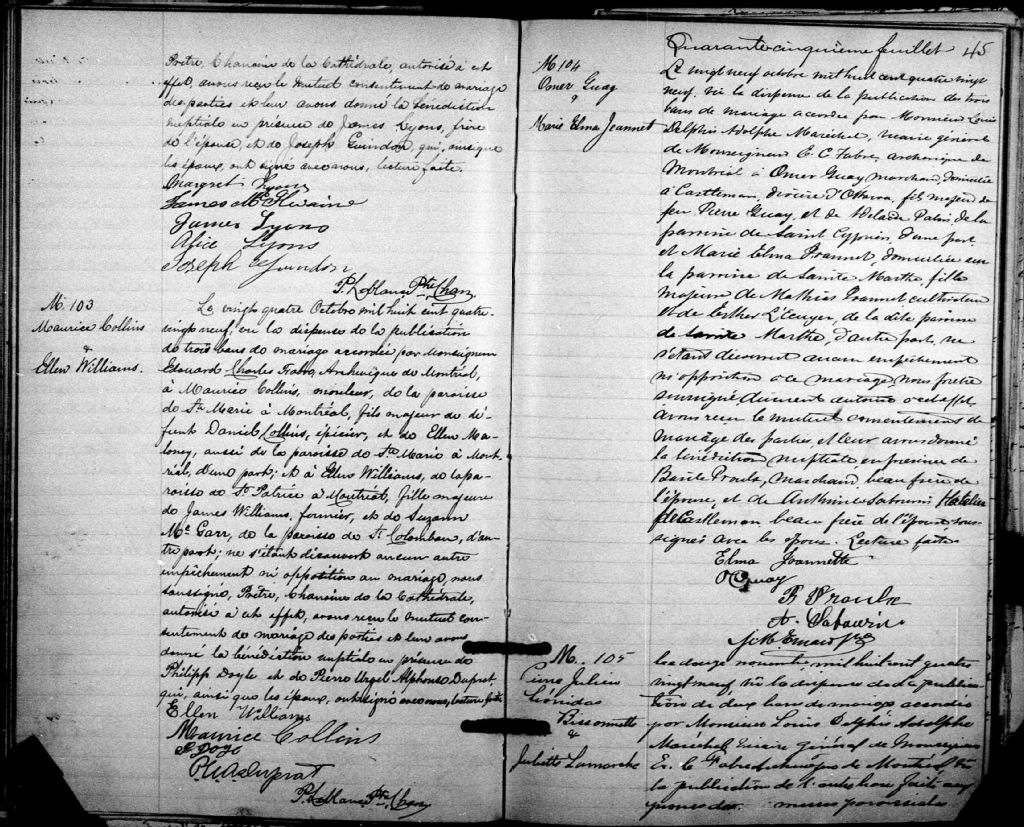 Prêtre, Chanoine de la Cathédrale, autorisé à cet
effet, avons reçu le mutuel consentement de mariage
des parties et leur avons donné la bénédiction
nuptiale en présence de James Lyons, frère
de l'épouse, et de Joseph Guindon, qui, ainsi que
les époux, ont signé avec nous, lecture faite.
Margret Lyons
James Mc Ilwaine
James Lyons
Alice Lyons
Joseph Guindon
P. Leblanc Ptre Chan.
M. 103
Maurice Collins
&
Ellen Williams.
Le vingt quatre Octobre mil huit cent quatre-
vingt neuf, vu la dispense de la publication
de trois bans de mariage accordée par Monseigneur
Edouard Charles Fabre, Archevêque de Montréal,
à Maurice Collins, mouleur, de la paroisse
de Ste Marie à Montréal, fils majeur de dé-
funt Daniel Collins, épicier, et de Ellen Ma-
loney, aussi de la paroisse de Ste Marie à Mont-
réal, d'une part; et à Ellen Williams, de la pa-
roisse de St Patrice à Montréal, fille majeure
de James Williams, fermier, et de Suzann
Mc Garr, de la paroisse de St Colomban, d'au-
tre part; ne s'étant découvert aucun autre
empêchement ni opposition au mariage, nous
soussigné, Prêtre, Chanoine de la Cathédrale,
autorisé à cet effet, avons reçu le mutuel con-
sentement de mariage des parties et leur avons
donné la bénédiction nuptiale en présence de
Philipp Doyle et de Pierre Urgel Alphonse Duprat,
qui, ainsi que les époux, ont signé avec nous, lecture faite
Ellen Williams
Maurice Collins
P Doyle
P.U.A. Duprat
P. Leblanc Ptre Chan.
Quarante cinquième feuillet 45
M 104
Omer Guay
&
Marie Elma Jeannet
Le vingt neuf octobre mil huit cent quatre vingt
neuf, vu la dispense de la publication des trois
bans de mariage accordée par Monsieur Louis
Delphis Adolphe Maréchal, vicaire général
de Monseigneur E. C. Fabre, archevêque de
Montréal à Omer Guay marchand, domicilié
à Castleman, diocèse d'Ottawa, fils majeur de
feu Pierre Guay, et de Adelaïde de la
paroisse de Saint Cyprien, d'une part
et Marie Elma Joannet, domiciliée sur
la paroisse de Sainte Marthe, fille
majeure de Mathias Joannet cultivateur
et de Esther L'Ecuyer, de la dite paroisse
de Sainte Marthe, d'autre part, ne
s'étant découvert aucun empêchement
ni opposition à ce mariage, nous prêtre
soussigné dûment autorisé à cet effet
avons reçu le mutuel consentement de
mariage des parties et leur avons donné
la bénédiction nuptiale en présence de
Basile Proulx, Marchand, beau frère de
l'épouse, et de Anthime Sabourin Hôtelier
de Castleman beau frère de l'époux sous-
signés avec les époux. Lecture faite
Elma Joannette
O Guay
B Proulx
A. Sabourin
M. 105
Julien
Léonidas
Bissonnette
&
Juliette Lamarche
Le douze novembre mil huit cent quatre
vingt neuf, vu la dispense de la publica-
tion de deux bans de mariage accordée
par Monsieur Louis Delphis Adolphe
Maréchal Vicaire général de Monseigneur
Ed. C. Fabre archevêque de Montréal vu
la publication de l'autre ban faite au
prône de messes paroissiales